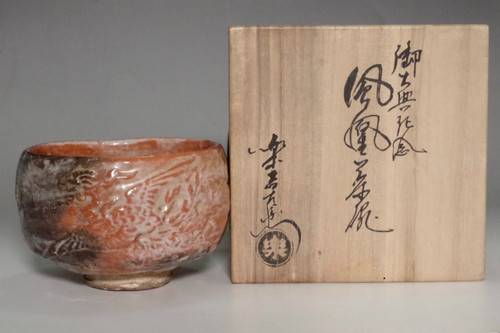 御大典記念
鳳凰茶碗
楽吉左衛門
樂